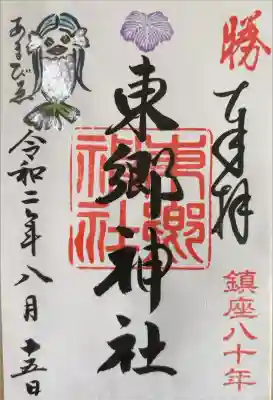 勝
奉拝
鎮座八十年
東郷神社
東郷神社
あまびゑ
令和二年八月十五日